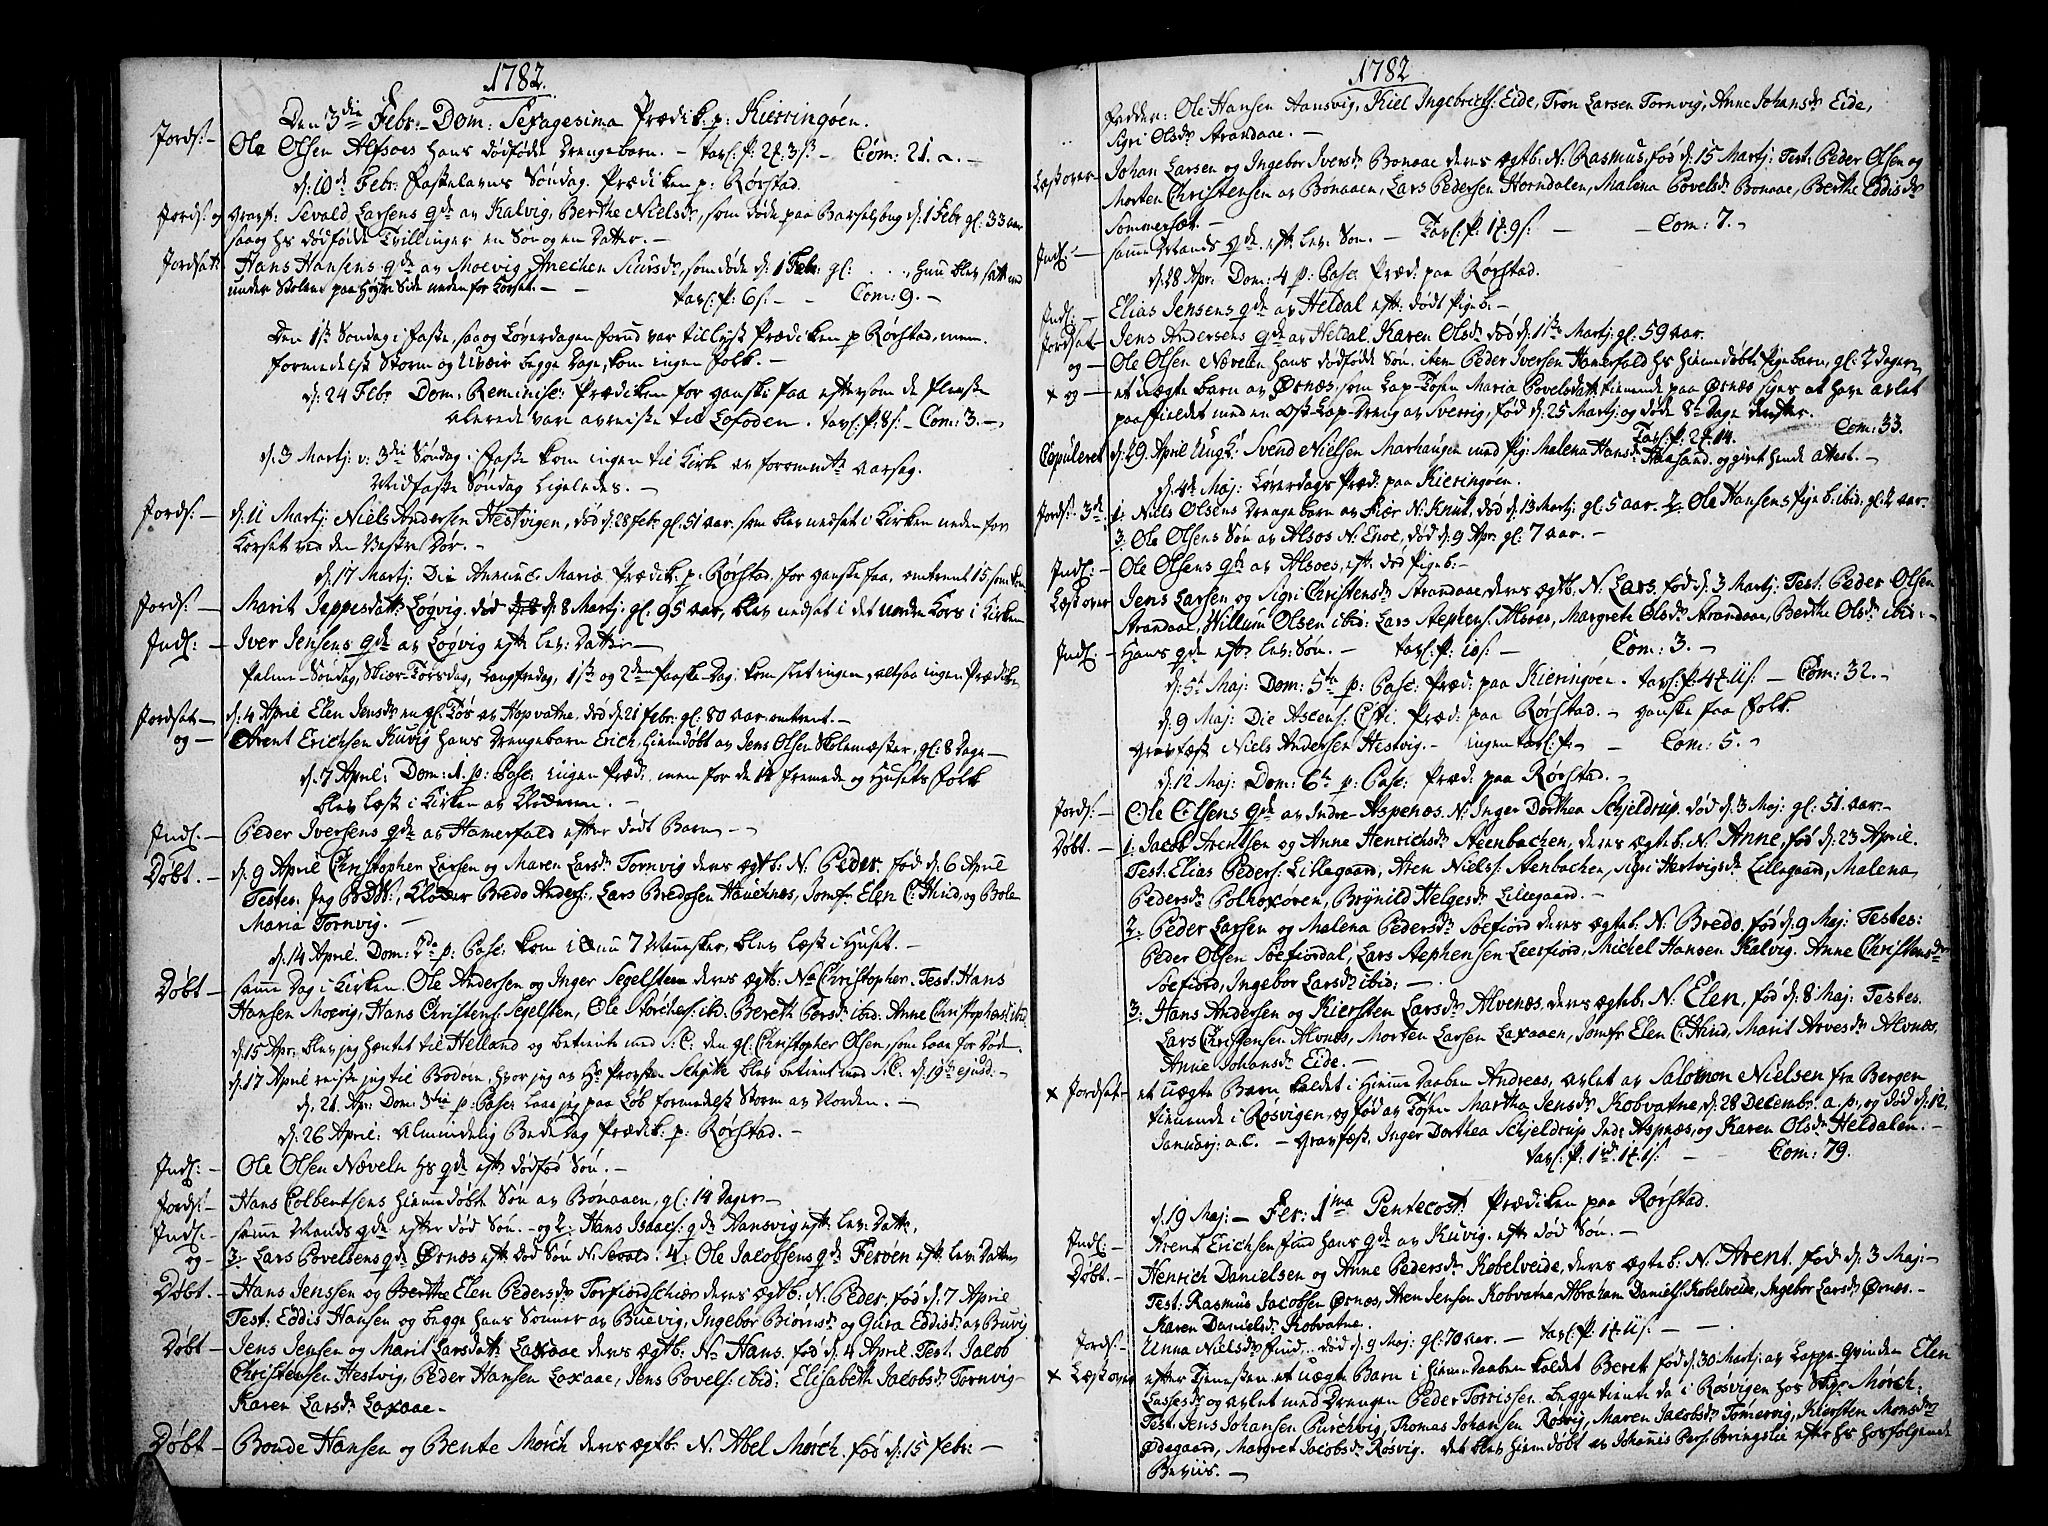 1782.
Den 3die Febr: Dom: Sexagesima Prædik: p: Kierringøen.
Jords: – Ole Olsen Alsoes hans dødfødde Drengebarn. – tavl: p: 2 3 s – Com: 21.
d: 10de Febr: Fastelavns Søndag. Prædiken p: Rørstad.
Jords: og Sevald Larsens qde av Kalvig, Berthe Nielsdr, som døde paa Barselseng d: 1 Febr gl: 33 aar
saa og hs dødfødde Tvillinger en Søn og en Datter. –
Jordsat: Hans Hansens qde av Moevig Anechen Siursdr, som døde d: 1 Febr: gl: . . . , hun blev satt ned
under Stolene paa Høgre Side neden for Korset. – tavl: p: 6 s: – Com: 9. –
Den 1ste Søndag i Faste, saa og Løverdagen forud var tillyst Prædiken p Rørstad, men
formedelst Storm og Uveir begge Dage, kom ingen Folk. –
d: 24 Febr Dom: Reminisc: Prædiken for ganske faa eftersom de fleeste
alerede vare avreiste til Lofoden. tavl: p: 8 s: – Com: 3. –
d: 3 Martj v: 3die Søndag i Faste kom ingen til Kirke av formente aarsag.
Midfaste Søndag Ligeledes. –
Jords: – d: 11 Martj Niels Andersen Hestvigen, død d: 28 Febr: gl: 51 aar, som blev nedsat i Kirken neden for
Korset ved den Vestre Dør. –
d: 17 Martj: Die Annunc: Mariæ Prædik: p: Rørstad, for ganske faa, omtrent 15, som kom
Jords: – Marit Jeppesdatt: Løgvig. død d: 8 Martj: gl: 95 aar, blev nedsat i det nordre Kors i Kirken
Indl: – Iver Jensens qde av Løgvig eftr lev: Datter –
Palme-Søndag, Skiær-Torsdag, Langfredag, 1ste og 2den Paaske-Dag: kom slet ingen, altsaa ingen Prædiken
Jordsat – d: 4 April Elen Jensdr en gl: Tøs av Hopvatne, død d: 21 Febr: gl: 80 aar omtrent. –
og – Arent Erichsen Kuvig hans Drengebarn Erich, hiemdøbt av Jens Olsen Skolemester, gl: 8 Dage –
d: 7 April: Dom: 1. p: Pasc: ingen Præd:, men for de 14 fremede og Husets Folk
blev læst i Kirken av Klokeren. –
Indl: – Peder Iversens qde av Hamerfald efter dødt Barn –
Døbt. – d: 9 April Christopher Larsen og Maren Larsdr Tornvig deres ægtb: N: Peder. fød d: 6 April
Testes: Jeg, Kloker Bredo Anders: Lars Bredesen Hauchnes, Jomfr: Elen C: Hind, og Bole
Maria Tornvig. –
d: 14 April. Dom: 2da p: Pasc: kom 7 Mennesker, blev læst i Huset. –
Døbt – samme Dag i Kirken. Ole Andersen og Inger Segelsteen deres ægtb: N: Christopher. Test: Hans
Hansen Moevig, Hans Christens: Segelsten, Ole Storches: ibd: Bereth Persdr ibid: Anne Christophersd: ibd:
d: 15 Apr: blev jeg hæntet til Helland og betiente med S: C: den gl: Christopher Olsen, som laae for Døden.
d: 17 April reiste jeg til Bodøen, hvor jeg av Hr Provsten Schytte blev betient med S: C: d: 19de ejusd: –
d: 21. Apr: Dom: 3tia p: Pasc: laae jeg paa Løb formedelst Storm av Norden. –
d: 26 April: Almindelig Bededag Prædik: p: Rørstad. –
Indl: – Ole Olsen Næveln hs qde eftr dødfød Søn. –
Jords: – Hans Colbentsens hiemmedøbte Søn av Bonaaen, gl: 14 Dage –
Indl: – samme Mands qde efter død Søn. – og 2: Hans Isacs: qde Aansvig eftr lev: Datt:,
og – 3: Lars Povelsens qde Ørnæs eftr død Søn N: Sevald. 4: Ole Jacobsens qde Ferven eftr lev: Datter
Døbt. – Hans Jenssen og Elen Pedersdr Torfiordschiær deres ægtb: N: Peder. fød d: 7 April
Test: Eddis Hansen og begge hans Sønner av Buevig, Ingebor Biørnsdr og Gura Eddisdr av Buvig
Døbt – Jens Jensen og Marit Larsdatt: Laxaae deres ægtb: N: Hans. fød d: 4 April. Test: Jacob
Christensen Hestvig, Peder Hansen Laxaae, Jens Povels: ibid: Elisabeth Jacobsdr Tornvig –
Karen Larsdr Laxaae. –
Døbt – Bonde Hansen og Bente Mørch deres ægtb: N: Abel Mørch. fød d: 15 Febr: –
1782
Fadder: Ole Hansen Aansvig, Kiel Ingebrichts: Eide, Tron Larsen Tornvig, Anne Johansdr Eide,
Sigri Olsdr Strandaae. –
Læst over – Johan Larsen og Ingebor Iversdr Bonaae deres ægtb: N: Rasmus, fød d: 15 Martj: Test: Peder Olsen og
Morten Christensen av Bonaaen, Lars Pedersen Horndalen, Malena Povelsdr Bonaae, Berthe Eddisdr
Sommerset. –
Indl: – samme Mands qde eftr lev: Søn. – Tavl: p: 1 9 s: – Com: 7. –
d: 28 Apr: Dom: 4 p: Pasc: Præd: paa Rørstad.
Indl: – Elias Jensens qde av Heldal eftr: dødt Pigeb: –
Jordsat – Jens Andersens qde av Heldal Karen Olsdr død d: 1ste Martj: gl: 59 aar.
og – Ole Olsen Næveln hans dødfødde Søn. item Peder Iversen Hamerfald hs hiemedøbte Pigebarn, gl: 2 Dage,
x og – et uægte barn av Ørnæs, som Lap-Tøsen Maria Povelsdatt: tienende paa Ørnæs siges at have avlet
paa fieldet med en Øst-Lap-Dreng av Sverrig, fød d: 25 Martj: og døde 8te Dage derefter.
Tavl: p: 2 14. Com: 33.
Copuleret d: 29 April Ung K: Svend Nielsen Marhaugen med Pig: Malena Hansdr Haasand. og givet hende attest. –
d: 4de Maj: Løverdags Præd: paa Kieringøen.
Jords: 3de 1: Niels Olsens Drengebarn av Kiær N: Knut, død d: 13 Martj: gl: 5 aar. 2: Ole Hansens Pigeb: ibid: gl: 2 aar.
3: Ole Olsens Søn av Alsos N: Enoc, død d: 9 Apr: gl: 7 aar. –
Indl: – Ole Olsens qde av Alsoes, eft: død Pigeb: –
Læst over Jens Larsen og Sigri Christensdr Strandaae, deres ægtb: N: Lars. fød d: 3 Martj: Test: Peder Olsen
Strandaae, Willum Olsen ibid: Lars Stephens: Alsoes, Margrete Olsdr Strandaae, Berthe Olsdr ibid: –
Indl: – Hans qde eftr lev: Søn. – tavl: p: 10 s: – Com: 3. –
d: 5te Maj: Dom: 5ta p: Pasc: Præd: paa Kieringøen. tavl: p: 4 11 s: – Com: 32. –
d: 9 Maj: Die Ascens: Xsti: Præd: paa Rørstad. – ganske faa Folk.
Gravfæst Niels Andersen Hestvig. – ingen tavl: p: – Com: 5. –
d: 12 Maj: Dom: 6ta p: Pasc: Præd: paa Rørstad. –
Jords: – Ole Colsens qde av Indre-Aspenæs. N: Inger Dorthea Schjeldrup. død d: 3 Maj: gl: 51 aar. –
Døbt. – 1: Jacob Arentsen og Anne Henrichsdr Steenbachen, deres ægteb: N: Anne, fød d: 23 April.
Test: Elias Peders: Lillegaard, Aren Niels: Stenbachen, Sigri Hertvigsdr Lillegaard, Malena
Pedersdr Polhoxøren, Brynild Helgesdr Lillegaard. –
2: Peder Larsen og Malena Pedersdr Søefiord deres ægteb: N: Bredo. fød d: 9 Maj: Testes:
Peder Olsen Søefiordal, Lars Stephensen Leerfiord, Michel Hansen Kalvig. Anne Christensdr
Søefiord, Ingebor Larsdr ibid: –
3: Hans Andersen og Kiersten Larsdr Alvenæs, deres ægtb: N: Elen, fød d: 8 Maj: Testes.
Lars Christensen Alvnæs, Morten Larsen Laxaaen, Jomfr: Elen C: Hind, Marit Arvesdr Alvnæs,
Anne Johansdr Eide. –
x Jordsat – et uægte Barn kaldet i Hiemmedaaben Andreas, avlet av Salomon Nielsen fra Bergen
tienende i Røsvigen, og fød av Tøsen Martha Jensdr Kobvatne, d: 28 Decembr: a. p:, og død d: 12
Januarj: a. c. – Gravfæst, Inger Dorthea Schjeldrup Indr: Aspnæs, og Karen Olsdr Heldalen. –
tavl: p: 1 rd. 1 1 s: – Com: 79.
d: 19 Maj: – Fer: 1ma Pentecost: Prædiken paa Rørstad.
Indl: – Arent Erichsen Find hans qde av Kuvig. eftr død Søn –
Døbt. – Henrich Danielsen og Anne Pedersdr Kobelveide, deres ægteb: N: Arent. fød d: 3 Maj: –
Test: Rasmus Jacobsen Ørnæs, Aren Jensen Kobvatne, Abraham Daniels: Kobelveide, Ingebor Larsdr Ørnæs. –
Karen Danielsdr Kobvatne.
Jords: – Unna Nielsdr Find, død d: 9 Maj: gl: 70 aar. – tavl: p: 1 11 s: –
x Læst over efter Tienesten et uægte Barn i hiemedaaben kaldet Beret fød d: 30 Martj: av Lappe-Qvinden Elen
Lassesdr og avlet med Drengen Peder Torrissen. begge tiente da i Røsvigen hos Sgr. Mørch:
Test: Jens Johansen Burchvig, Thomas Johansen Røsvig, Maren Jacobsdr Tømervig, Kiersten Monsdr
Ødegaard, Margret Jacobsdr Røsvig. det blev hiemdøbt av Johannis Pers: Bringslie efter hs hosfølgende
Beviis. –